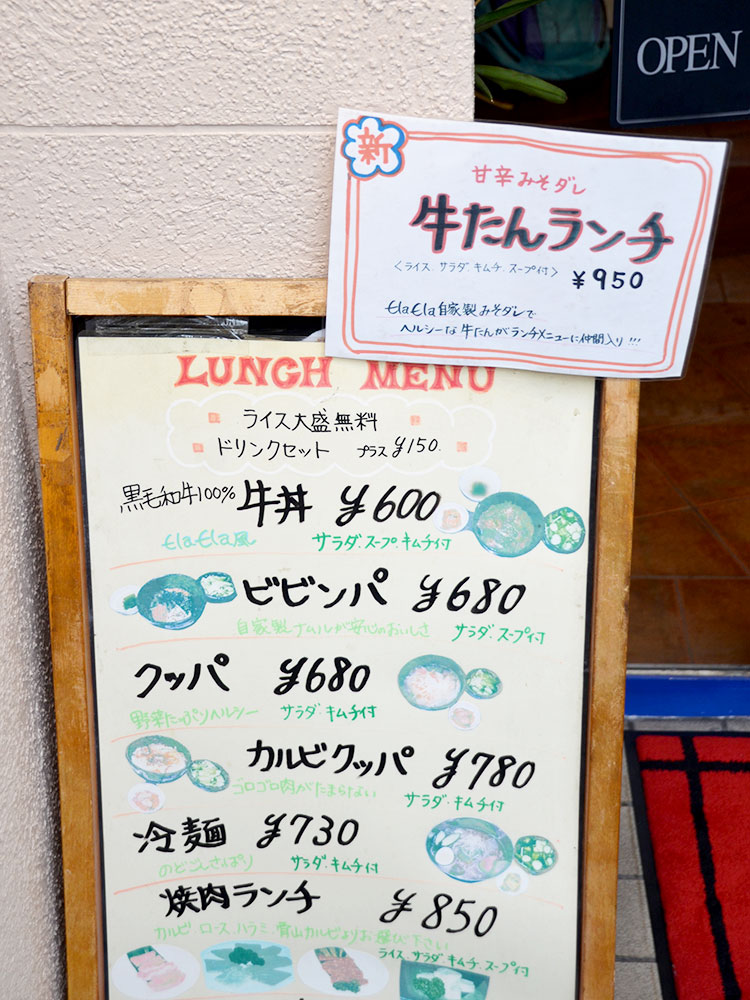 OPEN
新
甘辛みそダレ
牛たんランチ
〈ライス、サラダ、キムチ、スープ付〉
¥950
ElaEla自家製みそダレで
ヘルシーな牛たんがランチメニューに仲間入り!!!
LUNCH MENU
ライス大盛無料
ドリンクセット プラス¥150.
黒毛和牛100% 牛丼 ¥600
ElaEla風 サラダ.スープ.キムチ付
ビビンパ ¥680
自家製ナムルが安心のおいしさ サラダ.スープ付
クッパ ¥680
野菜たっぷりヘルシー サラダ.キムチ付
カルビクッパ ¥780
ゴロゴロ肉がたまらない サラダ.キムチ付
冷麺 ¥730
のどごしさっぱり サラダ.キムチ付
焼肉ランチ ¥850
カルビ、ロース、ハラミ、青山カルビよりお選び下さい
ライス、サラダ、キムチ、スープ付